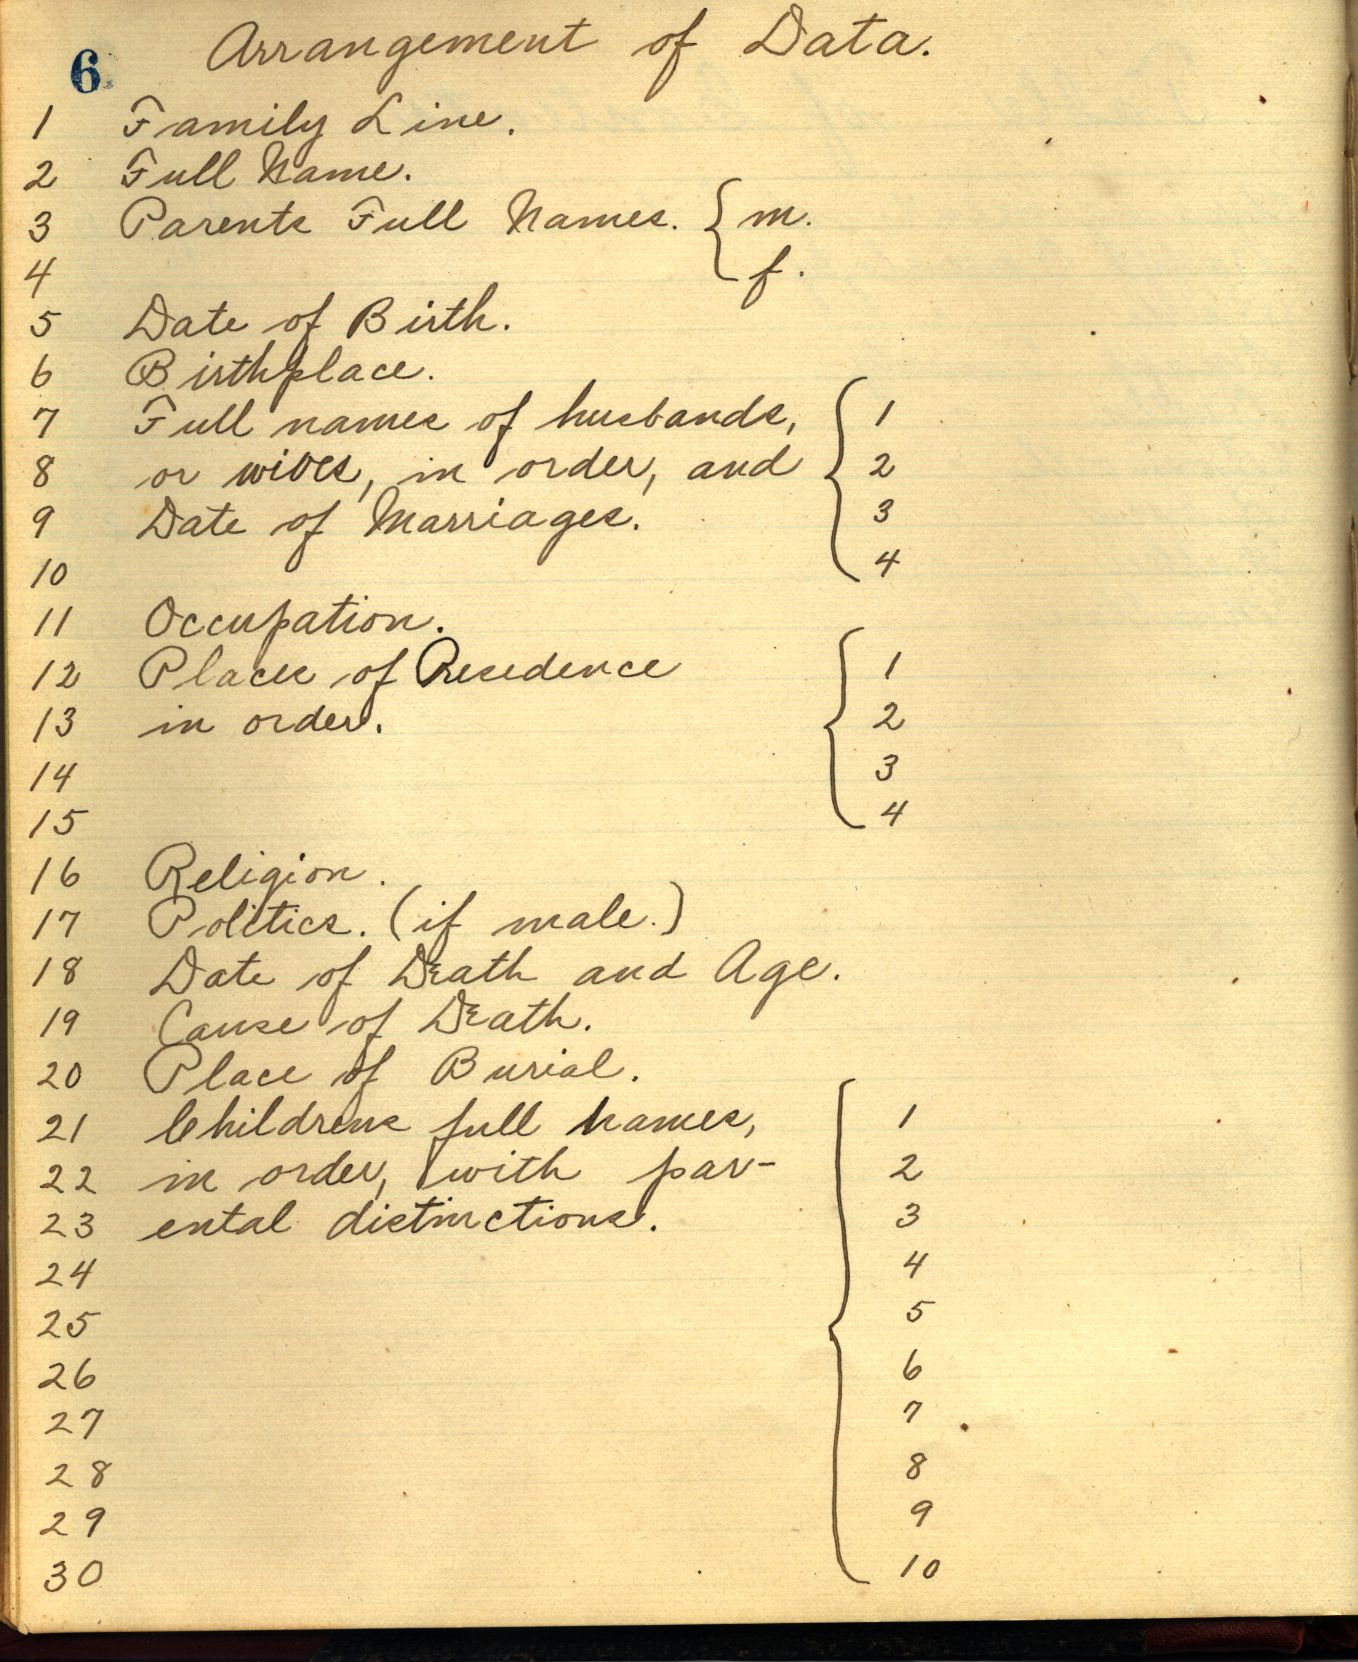 6 Arrangement of Data.
1 Family Line.
2 Full Name.
3 Parents Full Names. { m.
4 f.
5 Date of Birth.
6 Birthplace.
7 Full names of husbands, { 1
8 or wives, in order, and 2
9 Date of Marriages. 3
10 4
11 Occupation.
12 Places of Resedence { 1
13 in order. 2
14 3
15 4
16 Religion.
17 Politics. (if male.)
18 Date of Death and Age.
19 Cause of Death.
20 Place of Burial.
21 Childrens full names, { 1
22 in order, with par- 2
23 ental distinctions. 3
24 4
25 5
26 6
27 7
28 8
29 9
30 10